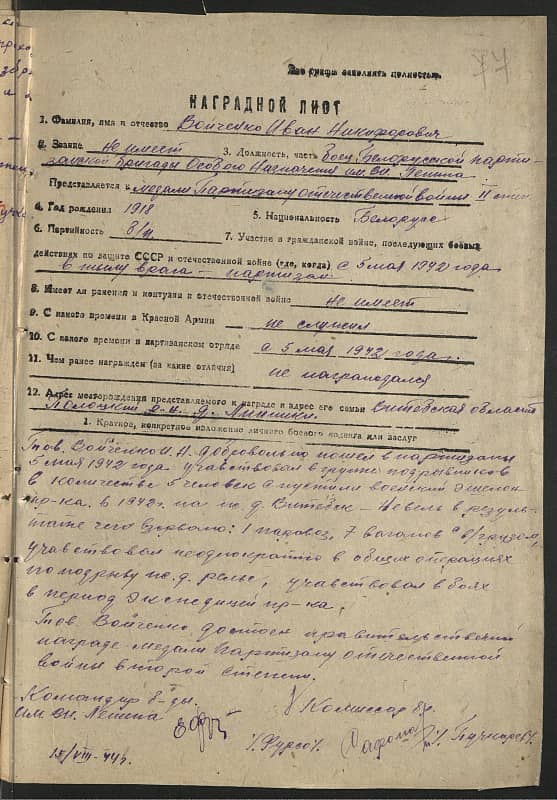 77
Все графы заполнять полностью.
НАГРАДНОЙ ЛИСТ
1. Фамилия, имя и отчество Войченко Иван Никифорович
2. Звание не имеет 3. Должность, часть Боец Белорусской парти-
занской бригады Особого Назначения им. Вл. Ленина
Представляется к медали Партизану отечественной войны II степ.
4. Год рождения 1918 5. Национальность Белорус
6. Партийность б/п 7. Участие в гражданской войне, последующих боевых
действиях по защите СССР и отечественной войне (где, когда) с 5 мая 1942 года
в тылу врага – партизан
8. Имеет ли ранения и контузии в отечественной войне не имеет
9. С какого времени в Красной Армии не служил
10. С какого времени в партизанском отряде с 5 мая 1942 года.
11. Чем ранее награжден (за какие отличия) не награждался
12. Адрес месторождения представляемого к награде и адрес его семьи Витебская область
Полоцкий р-н. д.
1. Краткое, конкретное изложение личного боевого подвига или заслуг
Тов. Войченко И.Н. добровольно пошел в партизаны
5 мая 1942 года участвовал в группе подрывников
в количестве 5 человек спустили воинский эшелон
пр-ка. в 1942 г. на ж. д. Витебск – Невель в резуль-
тате чего взорвало: 1 паровоз, 7 вагонов с грузом,
учавствовал неоднократно в общих операциях
по подрыву ж. д. рельс, учавствовал в боях
в период экспедиций пр-ка,
Тов. Войченко достоен правительственной
награде медали Партизану отечественной
войны второй степени.
Командир б-ды. Комиссар бр.
им. Вл. Ленина
/Фурсо/.
15/VIII-44г.